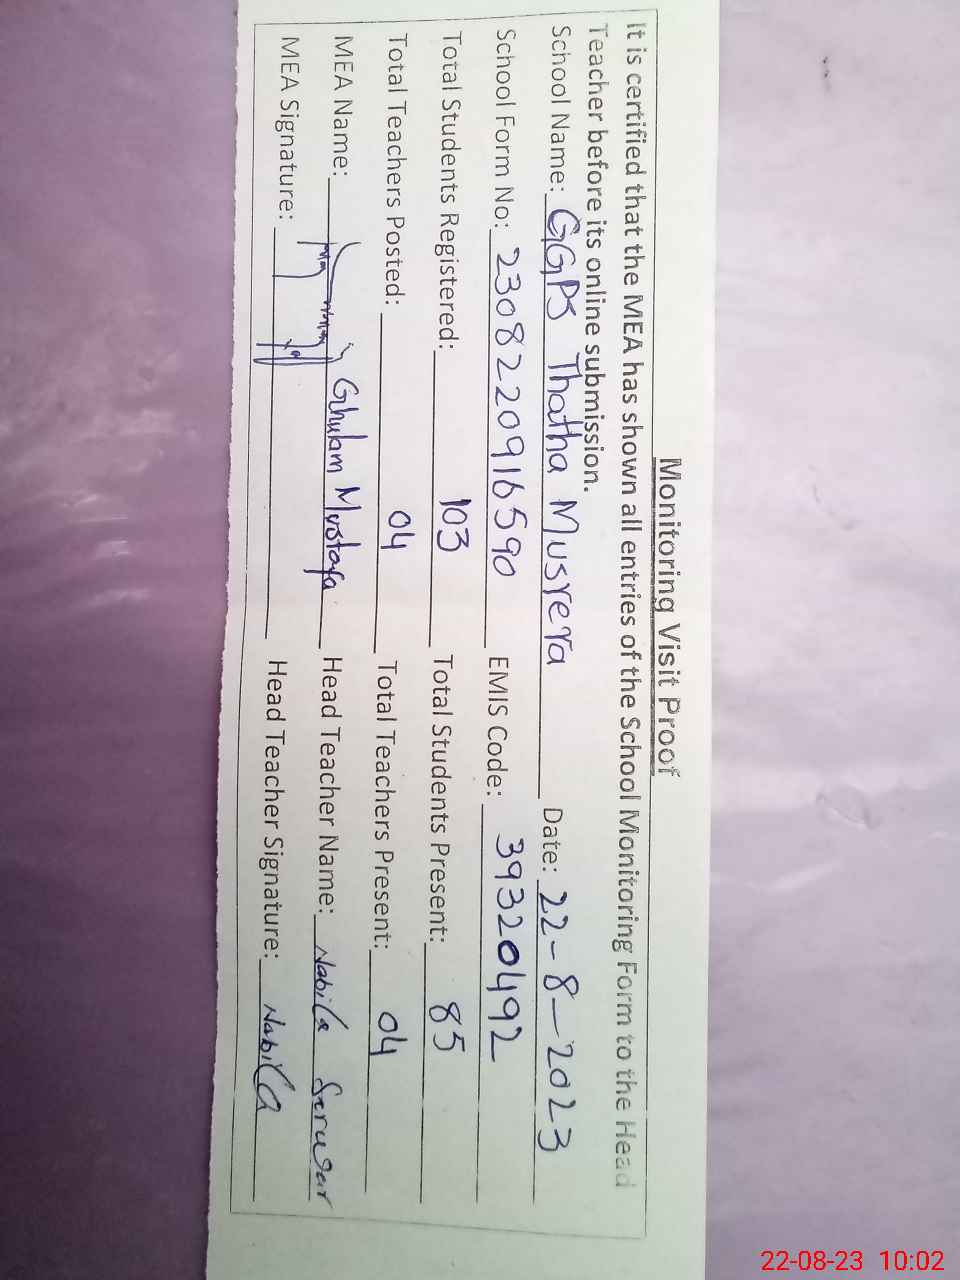 Monitoring Visit Proof
It is certified that the MEA has shown all entries of the School Monitoring Form to the Head
Teacher before its online submission.
School Name: GGPS Thatha Musrera Date: 22-8-2023
School Form No: 2308220916590 EMIS Code: 39320492
Total Students Registered: 103 Total Students Present: 85
Total Teachers Posted: 04 Total Teachers Present: 04
MEA Name: Ghulam Mustafa Head Teacher Name: Nabila Serwar
MEA Signature: Head Teacher Signature: Nabila
22-08-23 10:02